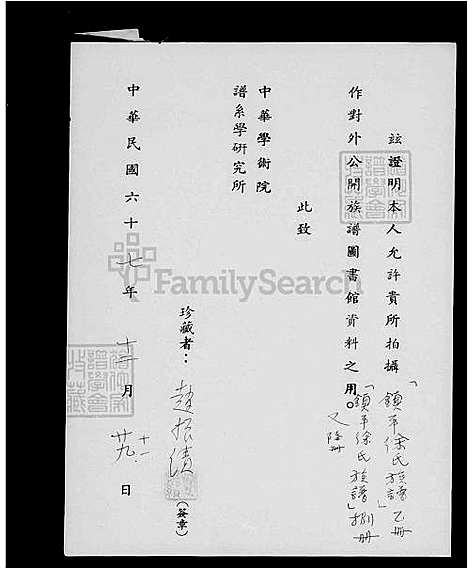 茲證明本人允許貴所拍攝「鎮平徐氏族譜」乙冊
「鎮平徐氏族譜」捌冊
作對外公開族譜圖書館資料之用。
此致
中華學術院
譜系學研究所
珍藏者：
(簽章)
中華民國六十七年十二月廿九日
FamilySearch